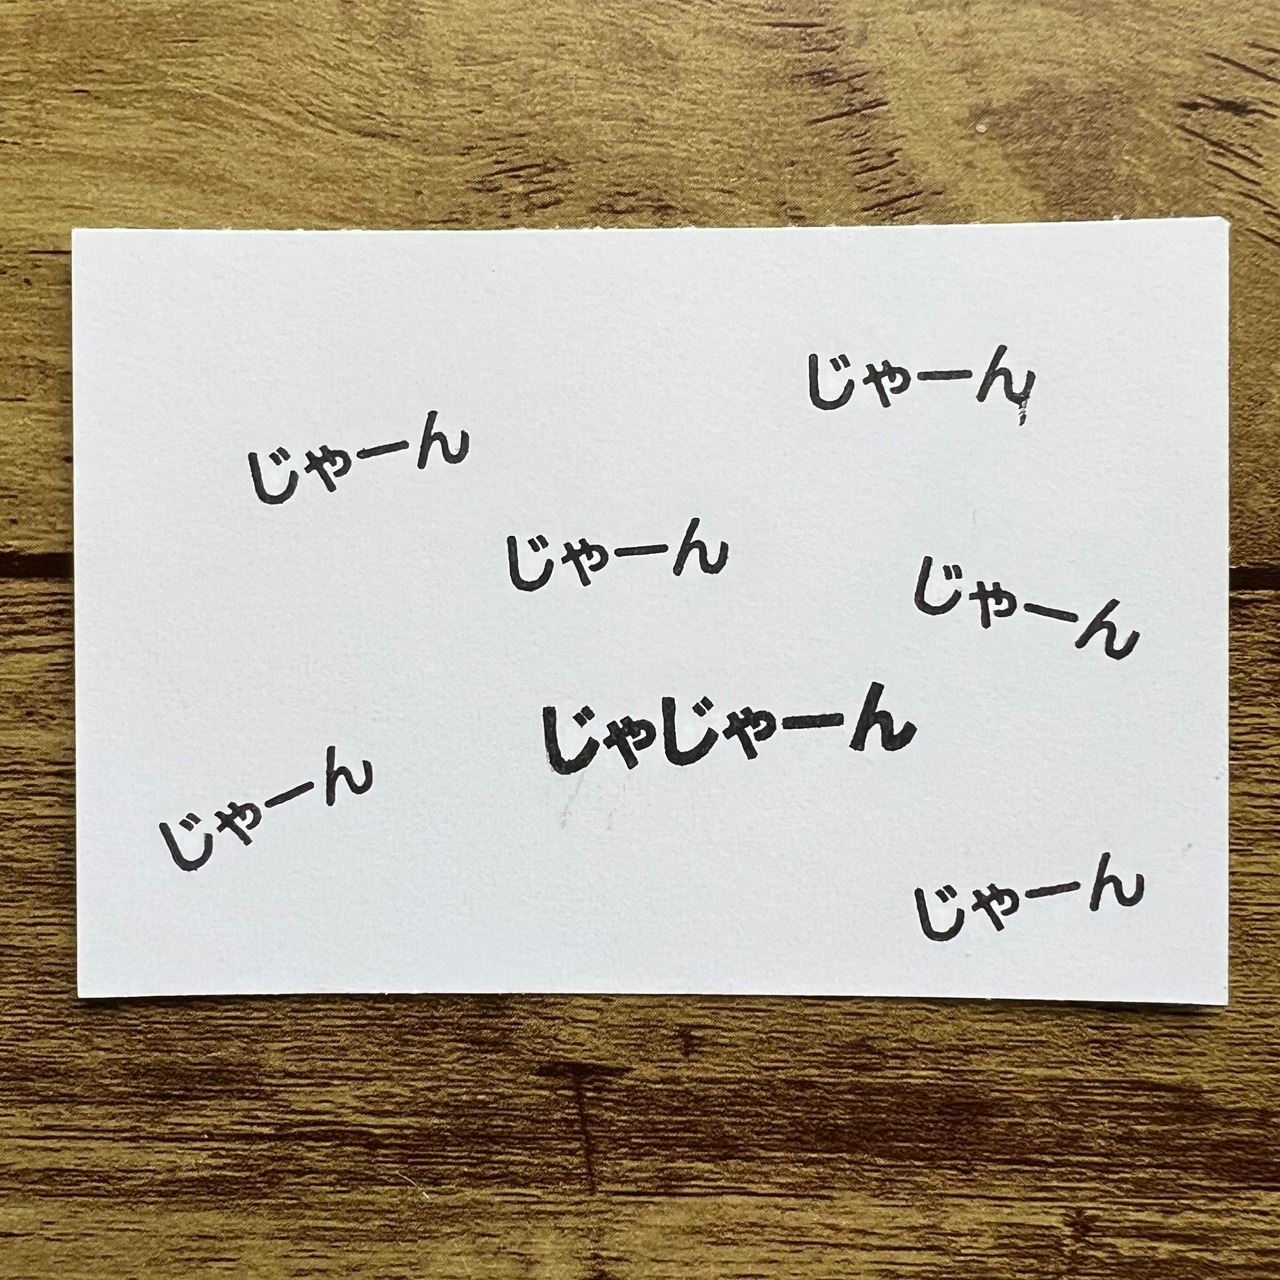 じゃーん
じゃーん
じゃーん
じゃーん
じゃじゃーん
じゃーん
じゃーん